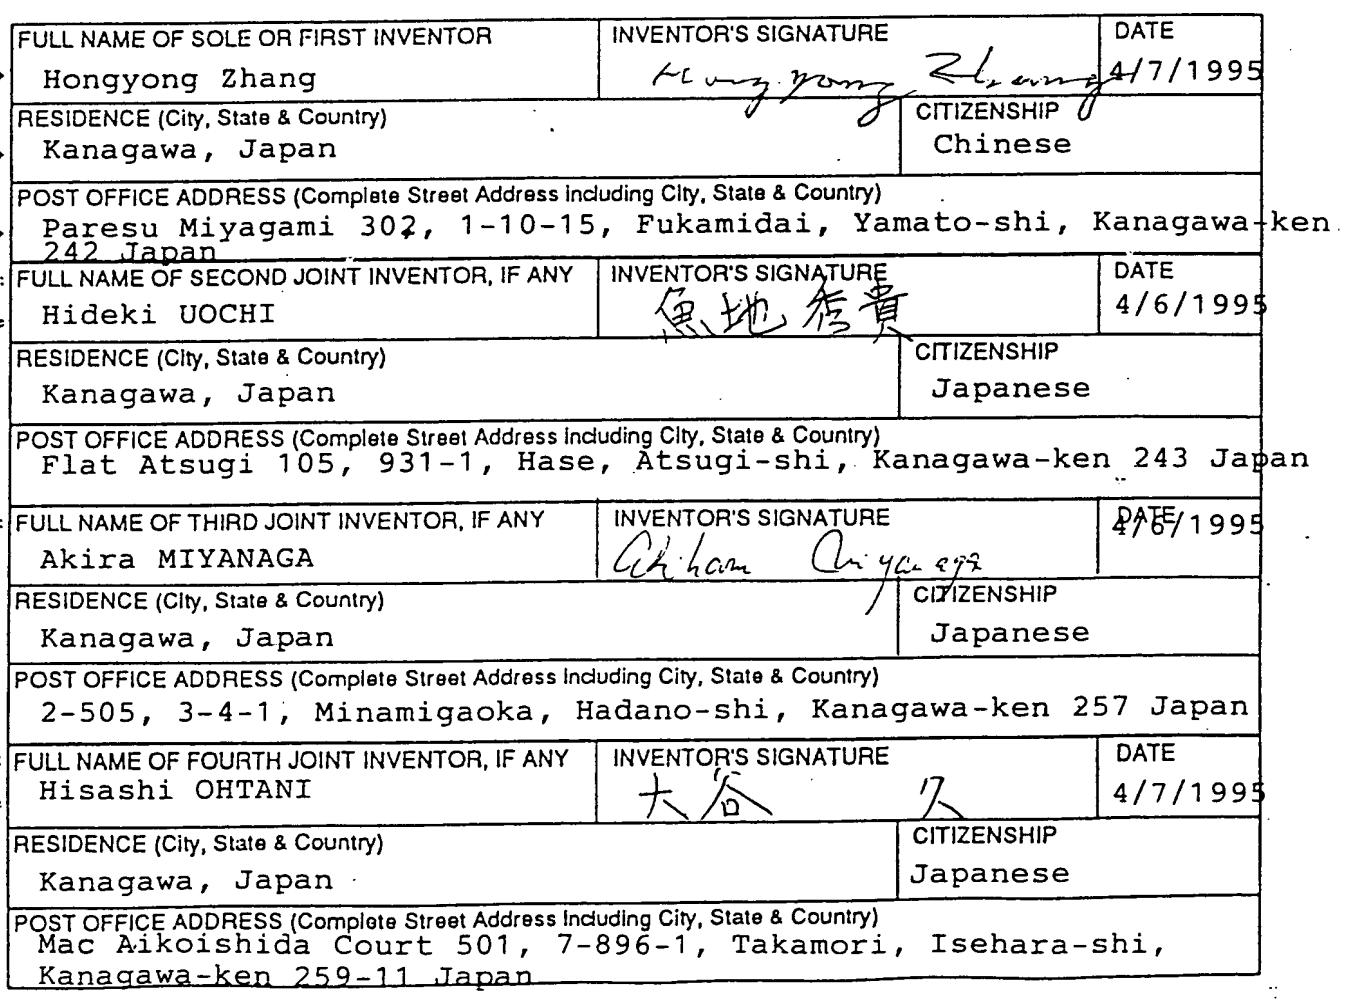 FULL NAME OF SOLE OR FIRST INVENTOR INVENTOR'S SIGNATURE DATE
Hongyong Zhang Hongyong Zhang 4/7/1995
RESIDENCE (City, State & Country) CITIZENSHIP
Kanagawa, Japan Chinese
POST OFFICE ADDRESS (Complete Street Address including City, State & Country)
Paresu Miyagami 302, 1-10-15, Fukamidai, Yamato-shi, Kanagawa-ken
242 Japan
FULL NAME OF SECOND JOINT INVENTOR, IF ANY INVENTOR'S SIGNATURE DATE
Hideki UOCHI 魚地秀貴 4/6/1995
RESIDENCE (City, State & Country) CITIZENSHIP
Kanagawa, Japan Japanese
POST OFFICE ADDRESS (Complete Street Address including City, State & Country)
Flat Atsugi 105, 931-1, Hase, Atsugi-shi, Kanagawa-ken 243 Japan
FULL NAME OF THIRD JOINT INVENTOR, IF ANY INVENTOR'S SIGNATURE DATE
Akira MIYANAGA Miyanaga 4/6/1995
RESIDENCE (City, State & Country) CITIZENSHIP
Kanagawa, Japan Japanese
POST OFFICE ADDRESS (Complete Street Address including City, State & Country)
2-505, 3-4-1, Minamigaoka, Hadano-shi, Kanagawa-ken 257 Japan
FULL NAME OF FOURTH JOINT INVENTOR, IF ANY INVENTOR'S SIGNATURE DATE
Hisashi OHTANI 大谷 久 4/7/1995
RESIDENCE (City, State & Country) CITIZENSHIP
Kanagawa, Japan Japanese
POST OFFICE ADDRESS (Complete Street Address including City, State & Country)
Mac Aikoishida Court 501, 7-896-1, Takamori, Isehara-shi,
Kanagawa-ken 259-11 Japan